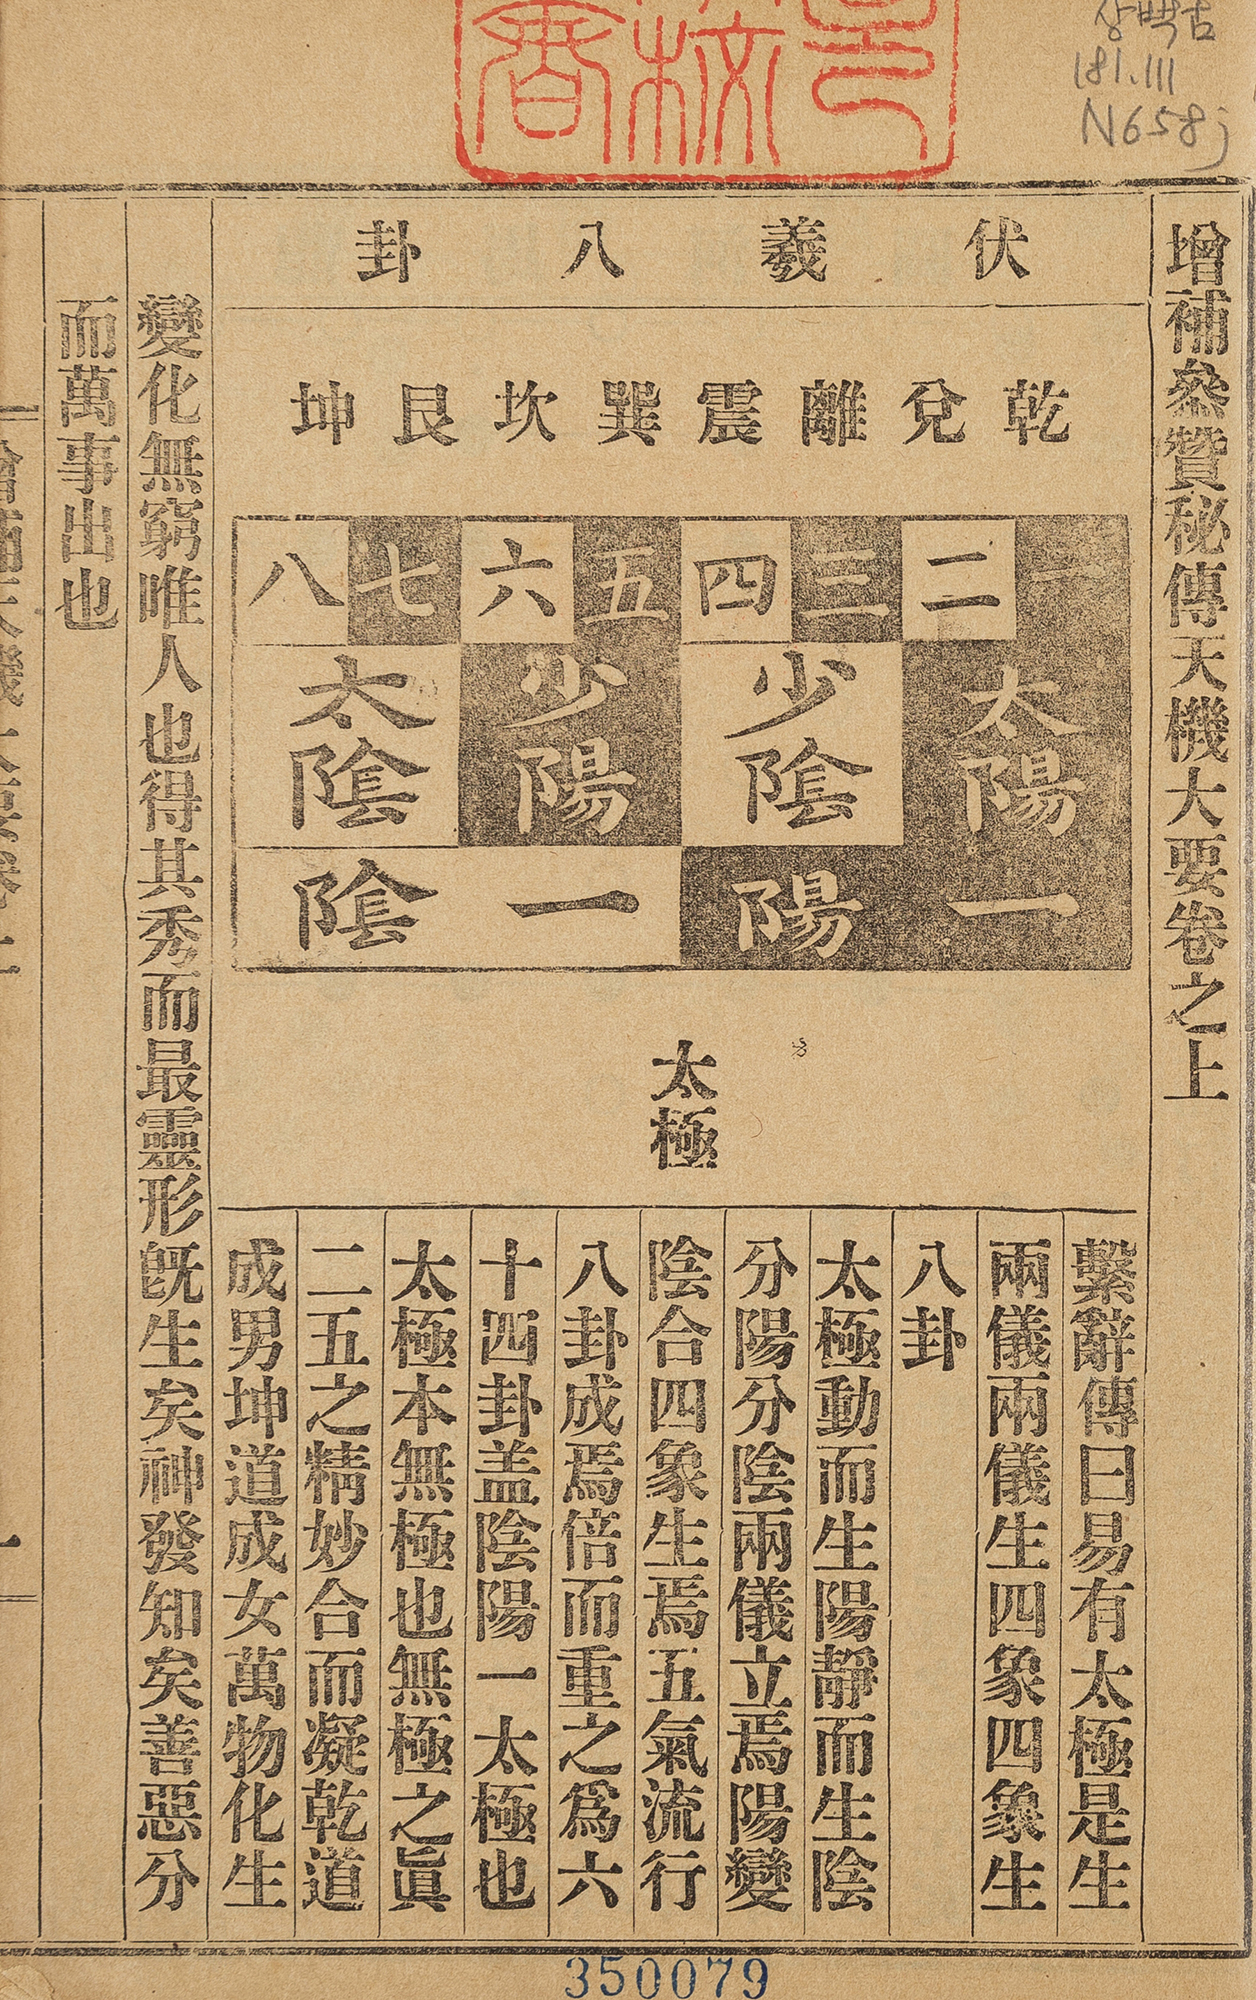 상백古
181.111
N658j
增補叅贊秘傳天機大要卷之上
伏羲八卦
乾兌離震巽坎艮坤
一二三四五六七八
太陽 少陰 少陽 太陰
陽一 陰一
太極
繫辭傳曰易有太極是生
兩儀兩儀生四象四象生
八卦
太極動而生陽靜而生陰
分陽分陰兩儀立焉陽變
陰合四象生焉五氣流行
八卦成焉倍而重之爲六
十四卦盖陰陽一太極也
太極本無極也無極之眞
二五之精妙合而凝乾道
成男坤道成女萬物化生
變化無窮唯人也得其秀而最靈形旣生矣神發知矣善惡分
而萬事出也
一
350079